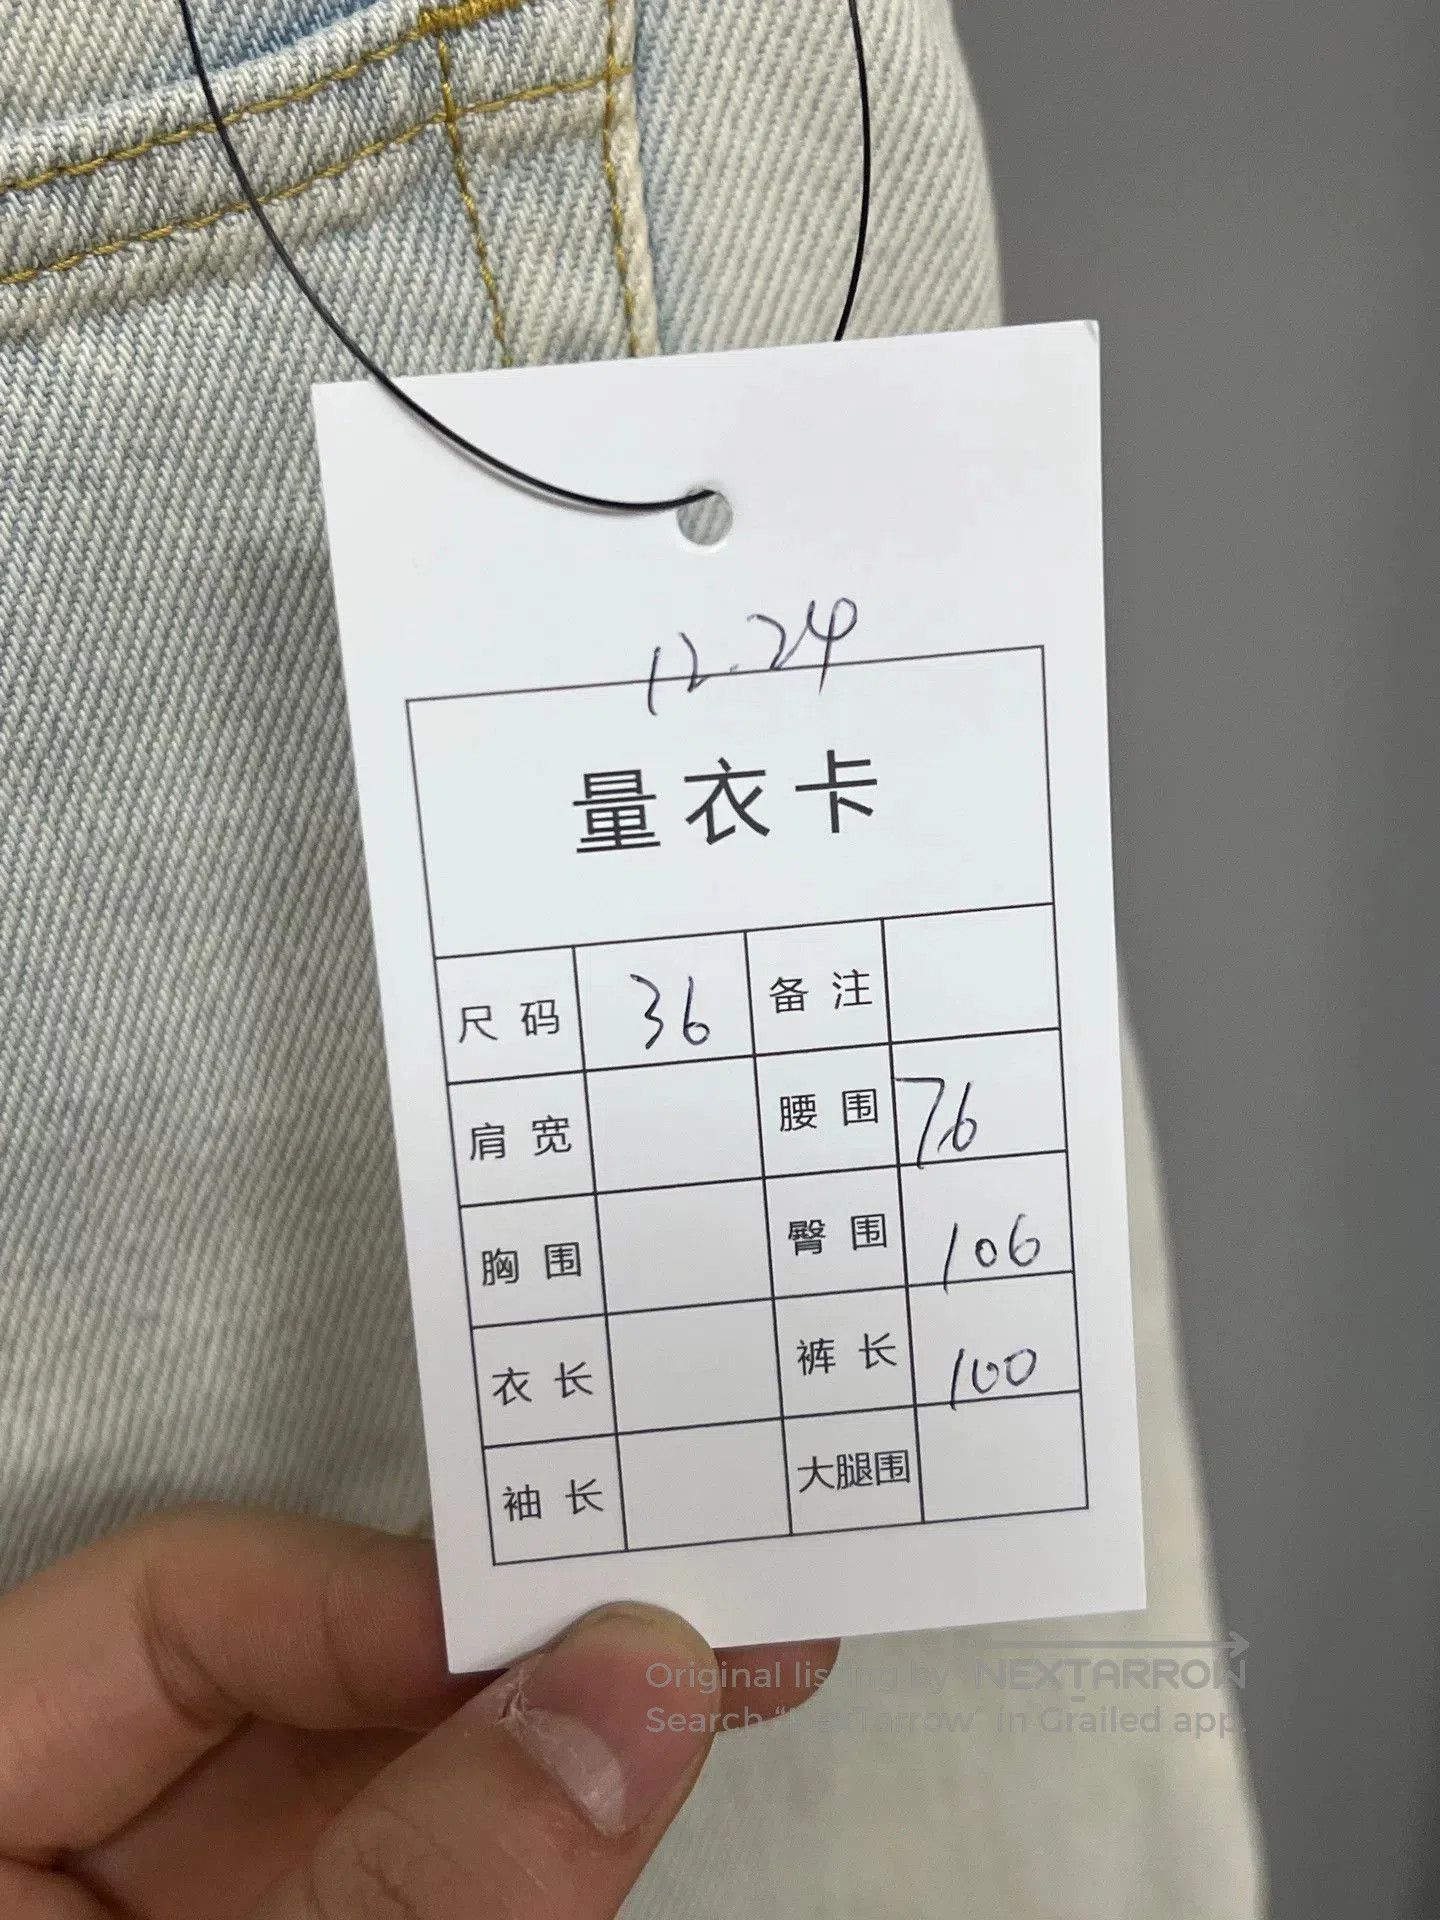 12.24
量衣卡
尺码 36 备注
肩宽 腰围 76
胸围 臀围 106
衣长 裤长 100
袖长 大腿围
Original listing by NEXTARROW
Search "NexTarrow" in Grailed app.